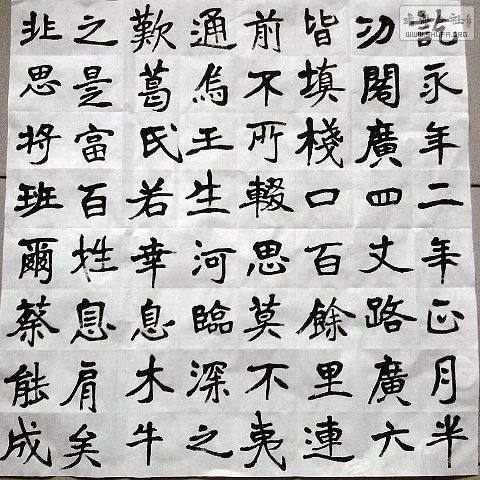 訖永年二年正月半
功閣廣四丈路廣六
皆填棧口百餘里連
前不所輟思莫不夷
通焉王生河臨深之
歎葛氏若幸息木牛
之是富百姓息肩矣
非思将班爾蔡能成
WWW.SHUFA.ORG